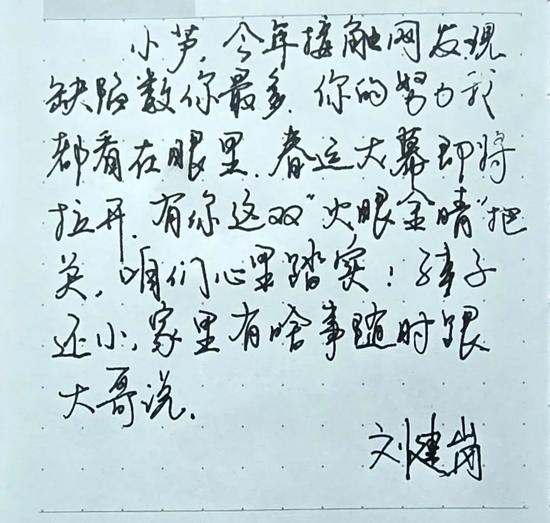 小芦，今年接触网发现
缺陷数你最多，你的努力我
都看在眼里，春运大幕即将
拉开，有你这双"火眼金睛"把
关，咱们心里踏实！孩子
还小，家里有啥事随时跟
大哥说。
刘建岗